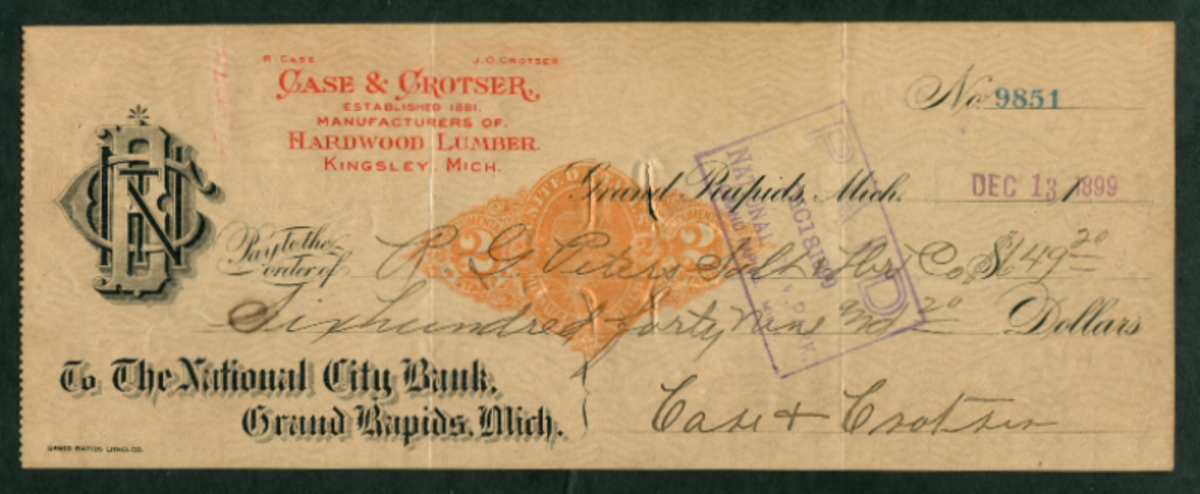 R. CASE J.O. CROTSER.
CASE & CROTSER,
ESTABLISHED 1881.
MANUFACTURERS OF
HARDWOOD LUMBER.
KINGSLEY, MICH.
No. 9851
Grand Rapids, Mich. DEC 13 1899
PAID
NATIONAL
Pay to the order of R G Peters Salt & Lbr Co. $649 20
Six hundred forty nine and 20 Dollars
To The National City Bank,
Grand Rapids, Mich.
Case & Crotser
GRAND RAPIDS LITHO. CO.